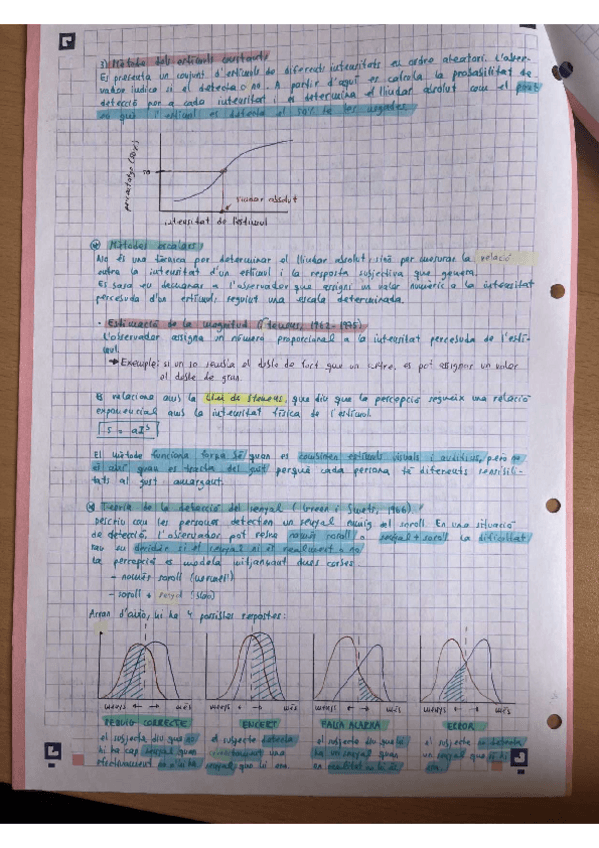 3) Mètode dels estímuls constants
Es presenta un conjunt d'estímuls de diferents intensitats en ordre aleatori. L'obser-
vador indica si el detecta o no. A partir d'aquí es calcula la probabilitat de
detecció per a cada intensitat i es determina el llindar absolut com el punt
en què l'estímul es detecta el 50% de les vegades
percentatge (50%)
50
llindar absolut
intensitat de l'estímul
Mètodes escalars:
No és una tècnica per determinar el llindar absolut, sinó per mesurar la relació
entre la intensitat d'un estímul i la resposta subjectiva que genera.
Es basa en demanar a l'observador que assigni un valor numèric a la intensitat
percebuda d'un estímul, seguint una escala determinada.
· Estimació de la magnitud (Stevens, 1962-1975)
L'observador assigna un número proporcional a la intensitat percebuda de l'estí-
mul.
→ Exemple: si un so sembla el doble de fort que un altre, es pot assignar un valor
el doble de gran.
Es relaciona amb la Llei de Stevens, que diu que la percepció segueix una relació
exponencial amb la intensitat física de l'estímul.
S = aI^b
El mètode funciona força bé quan es combinen estímuls visuals i auditius, però no
és així quan es tracta del gust perquè cada persona té diferents sensibili-
tats al gust amargant.
Teoria de la detecció del senyal (Green i Swets, 1966)
Descriu com les persones detecten un senyal enmig del soroll. En una situació
de detecció, l'observador pot rebre només soroll o senyal + soroll. La dificultat
rau en decidir si el senyal hi és realment o no
La percepció es modela mitjançant dues corbes:
- només soroll (vermell)
- soroll + senyal (blau)
Arran d'això, hi ha 4 possibles respostes:
menys ← → més menys ← → més menys ← → més menys ← → més
REBUIG CORRECTE ENCERT FALSA ALARMA ERROR
el subjecte diu que no el subjecte detecta el subjecte diu que hi el subjecte no detecta
hi ha cap senyal quan correctament una ha un senyal quan un senyal que sí hi
efectivament no n'hi ha senyal que hi era en realitat no hi és era